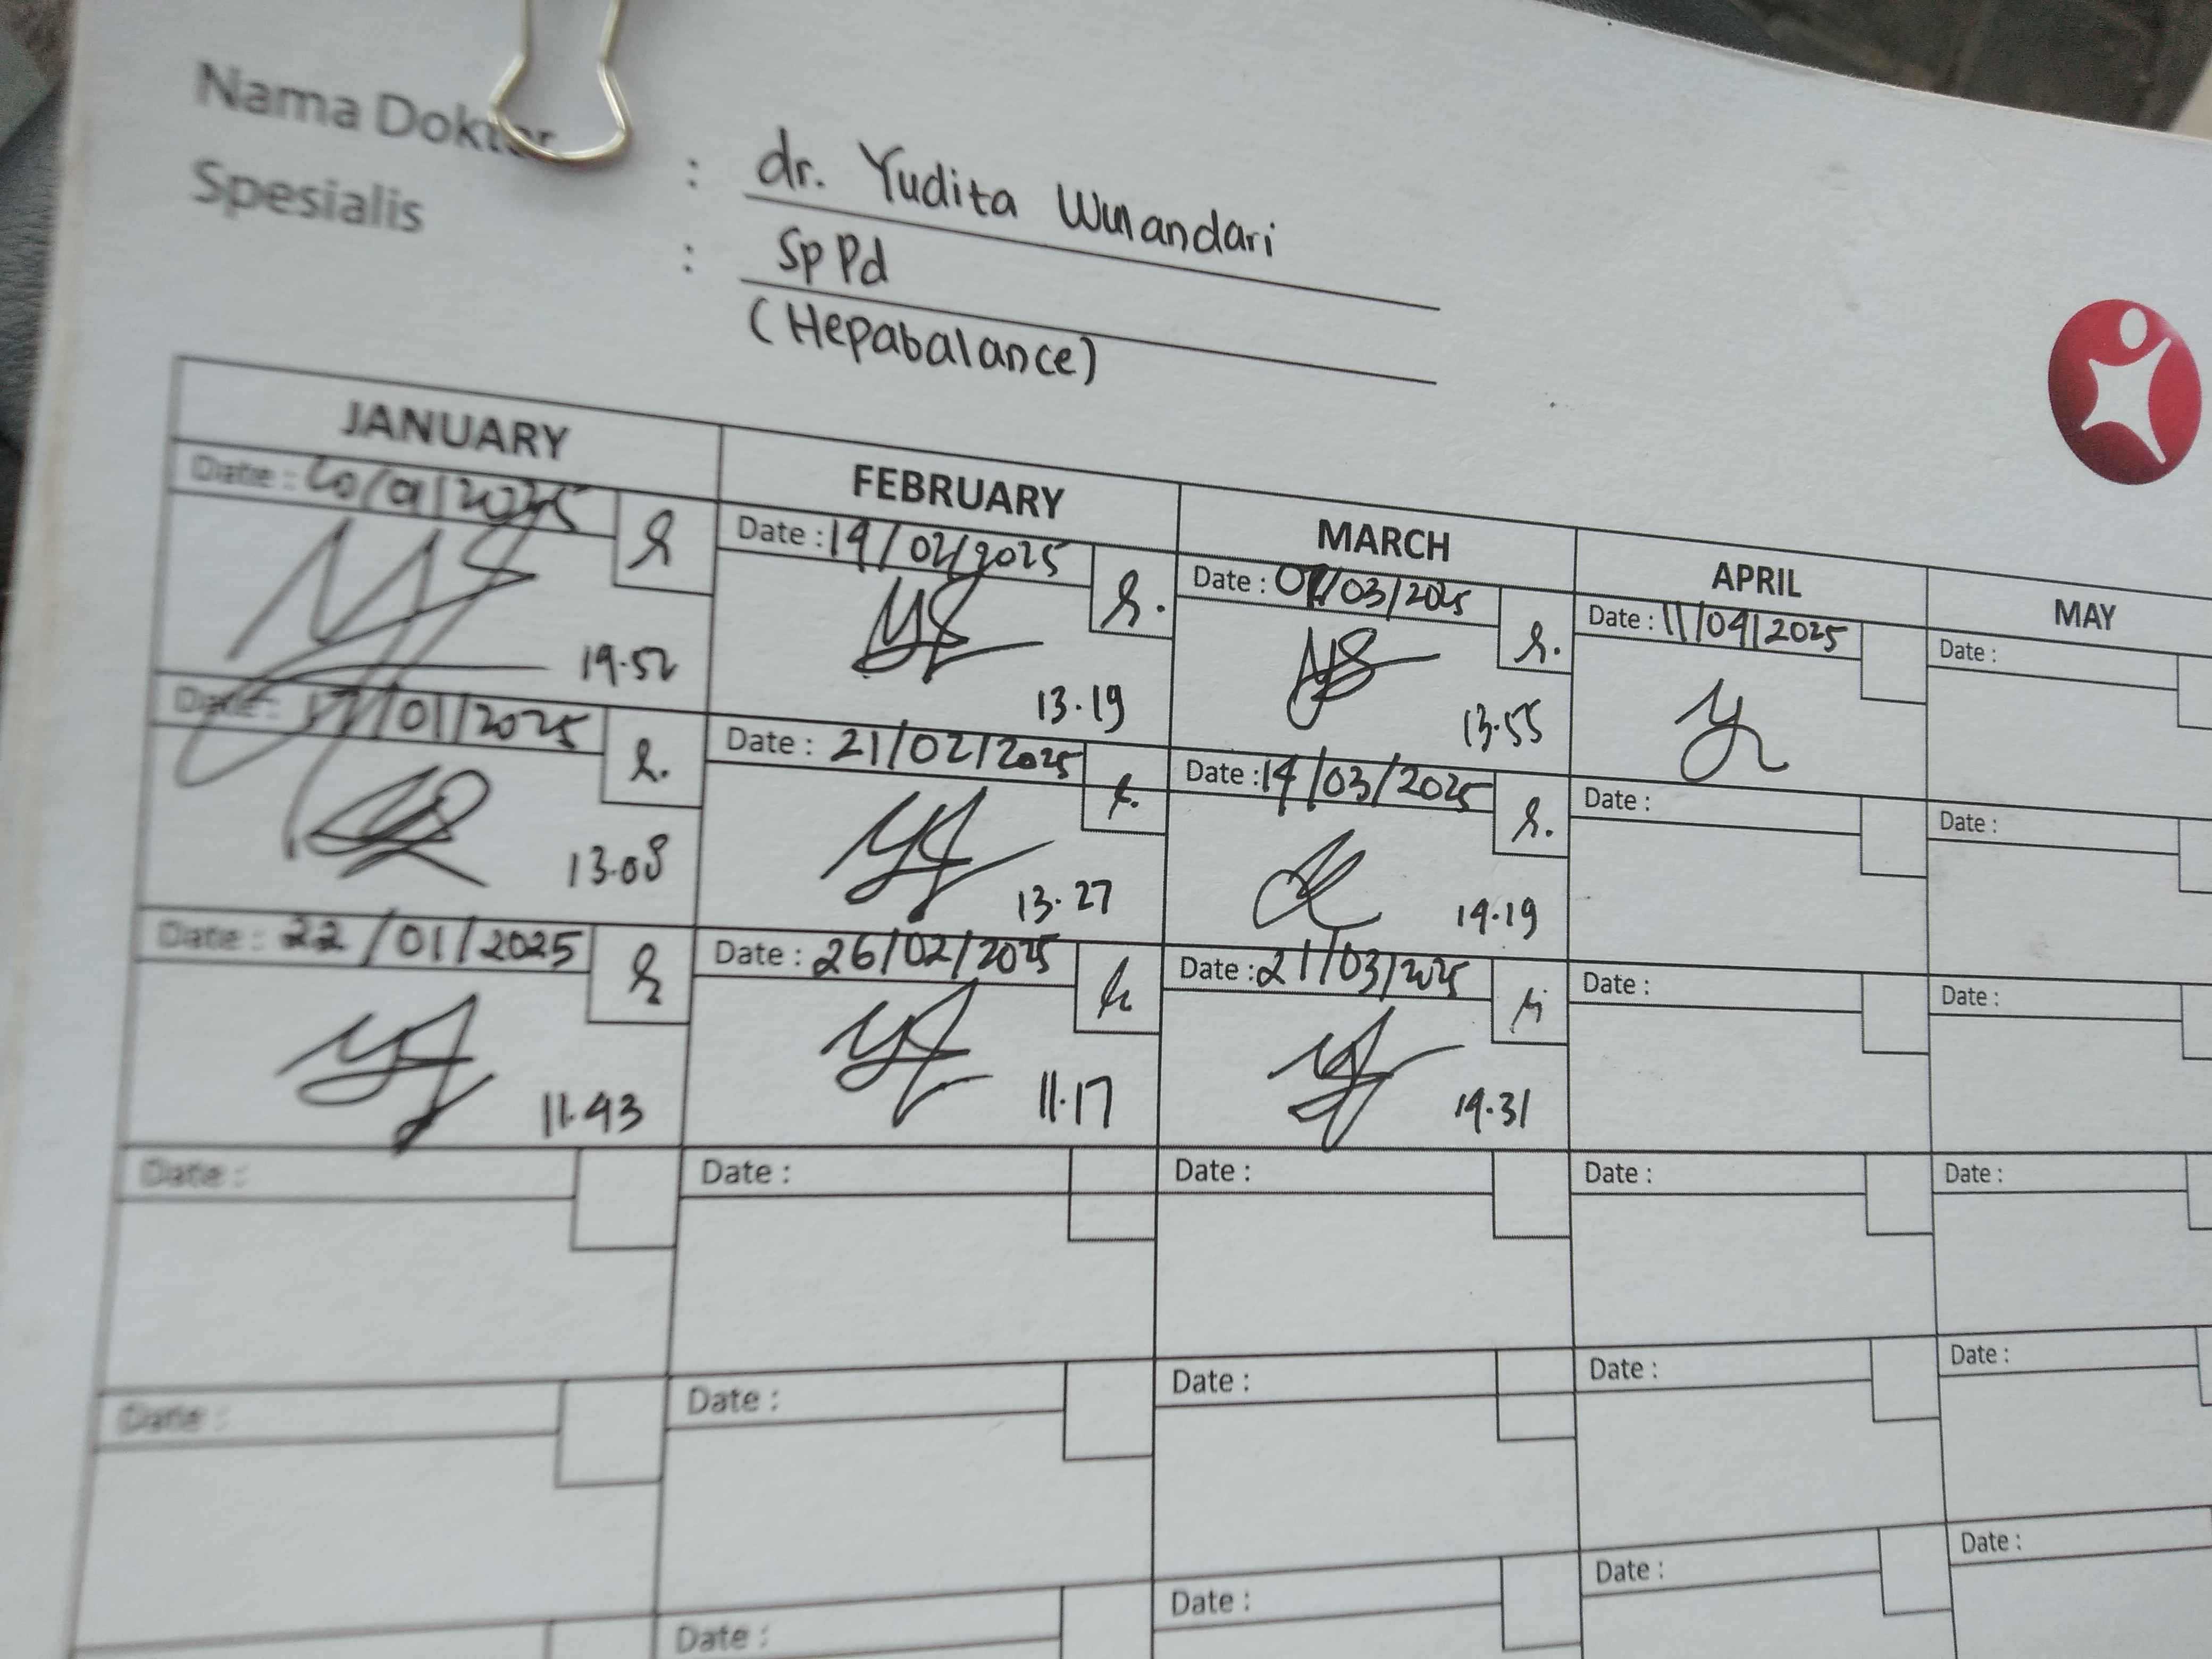 Nama Dokter : dr. Yudita Wulandari
Spesialis : Sp Pd
(Hepabalance)
JANUARY
Date :
19.52
Date : 17/01/2025
13.08
Date : 22/01/2025
11.43
Date :
Date :
FEBRUARY
Date : 14/02/2025
13.19
Date : 21/02/2025
13.27
Date : 26/02/2025
11.17
Date :
Date :
Date :
MARCH
Date : /03/2025
13.55
Date : 14/03/2025
14.19
Date : 21/03/2025
14.31
Date :
Date :
Date :
APRIL
Date : 11/04/2025
Date :
Date :
Date :
Date :
Date :
MAY
Date :
Date :
Date :
Date :
Date :
Date :